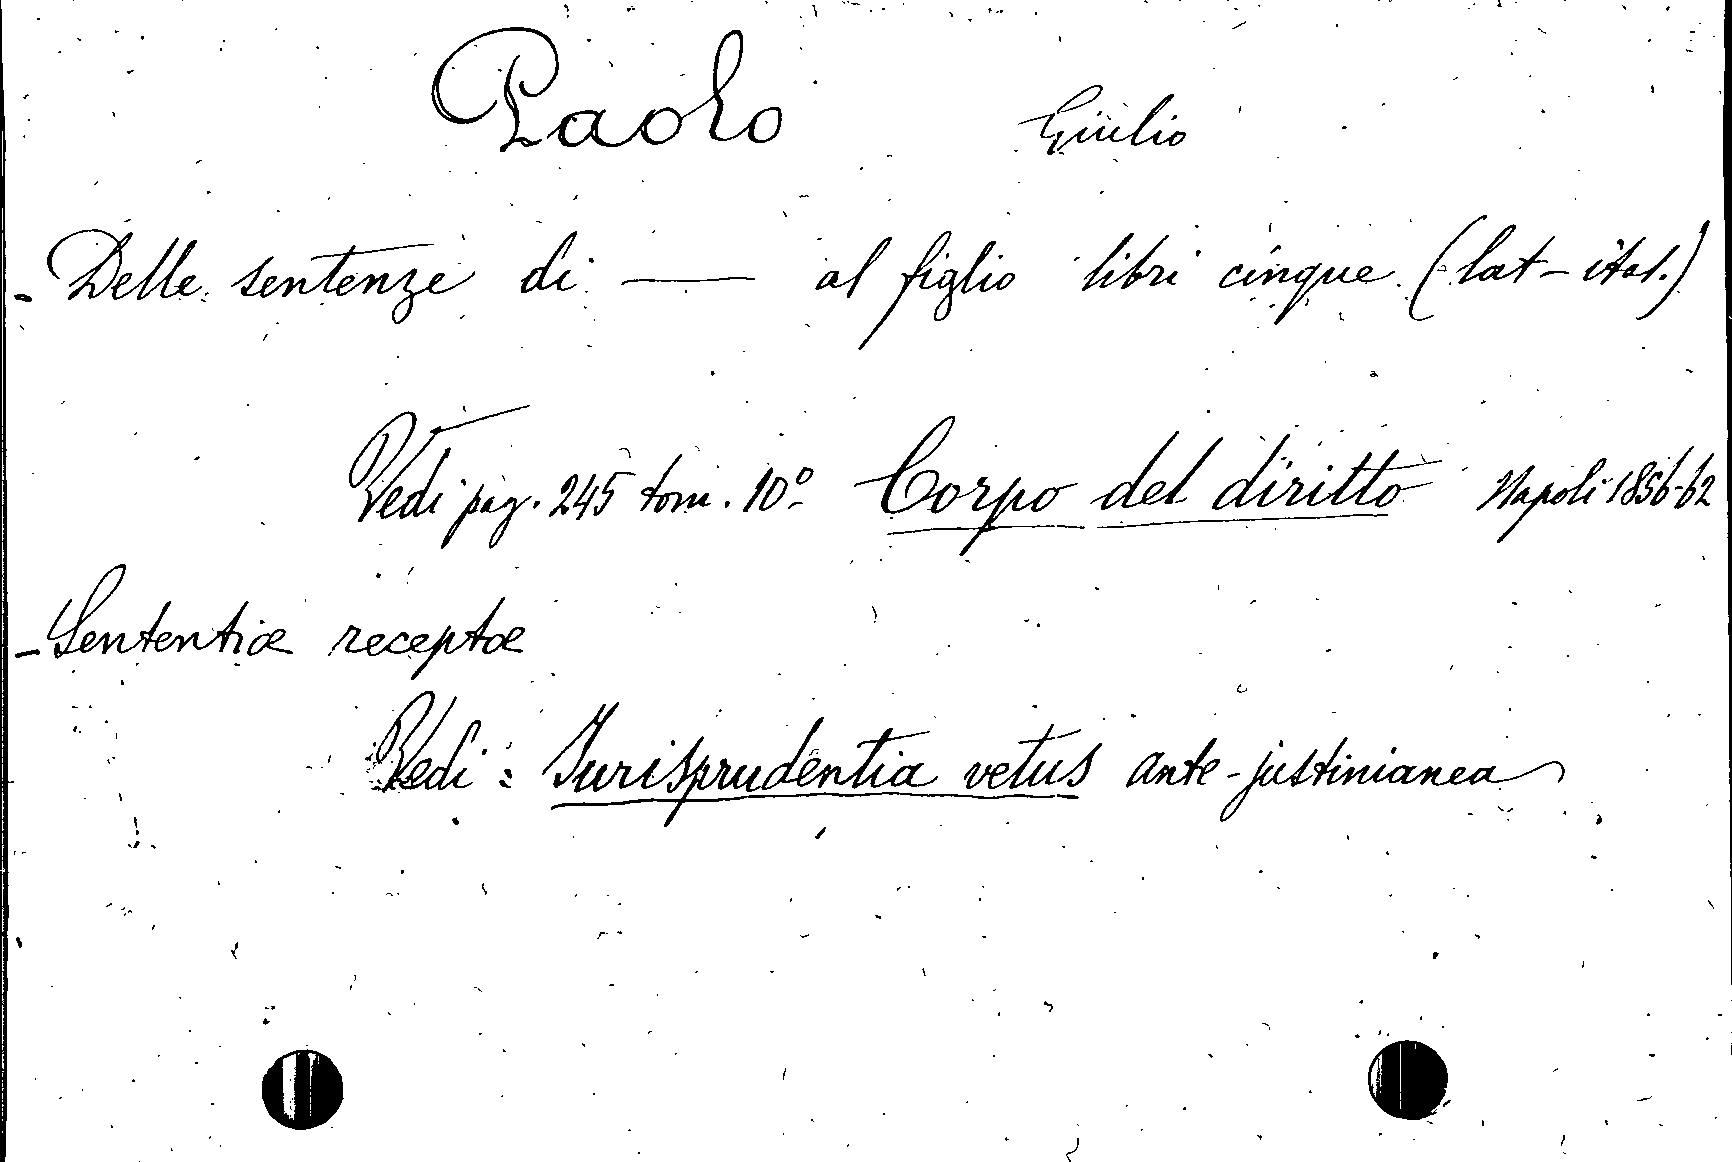 Paolo Giulio
- Delle sentenze di —— al figlio libri cinque (lat-ital.)
Vedi pag. 245 tom. 10º Corpo del diritto Napoli 1856-62
- Sententiæ receptæ
Vedi: Jurisprudentia vetus ante-justinianea